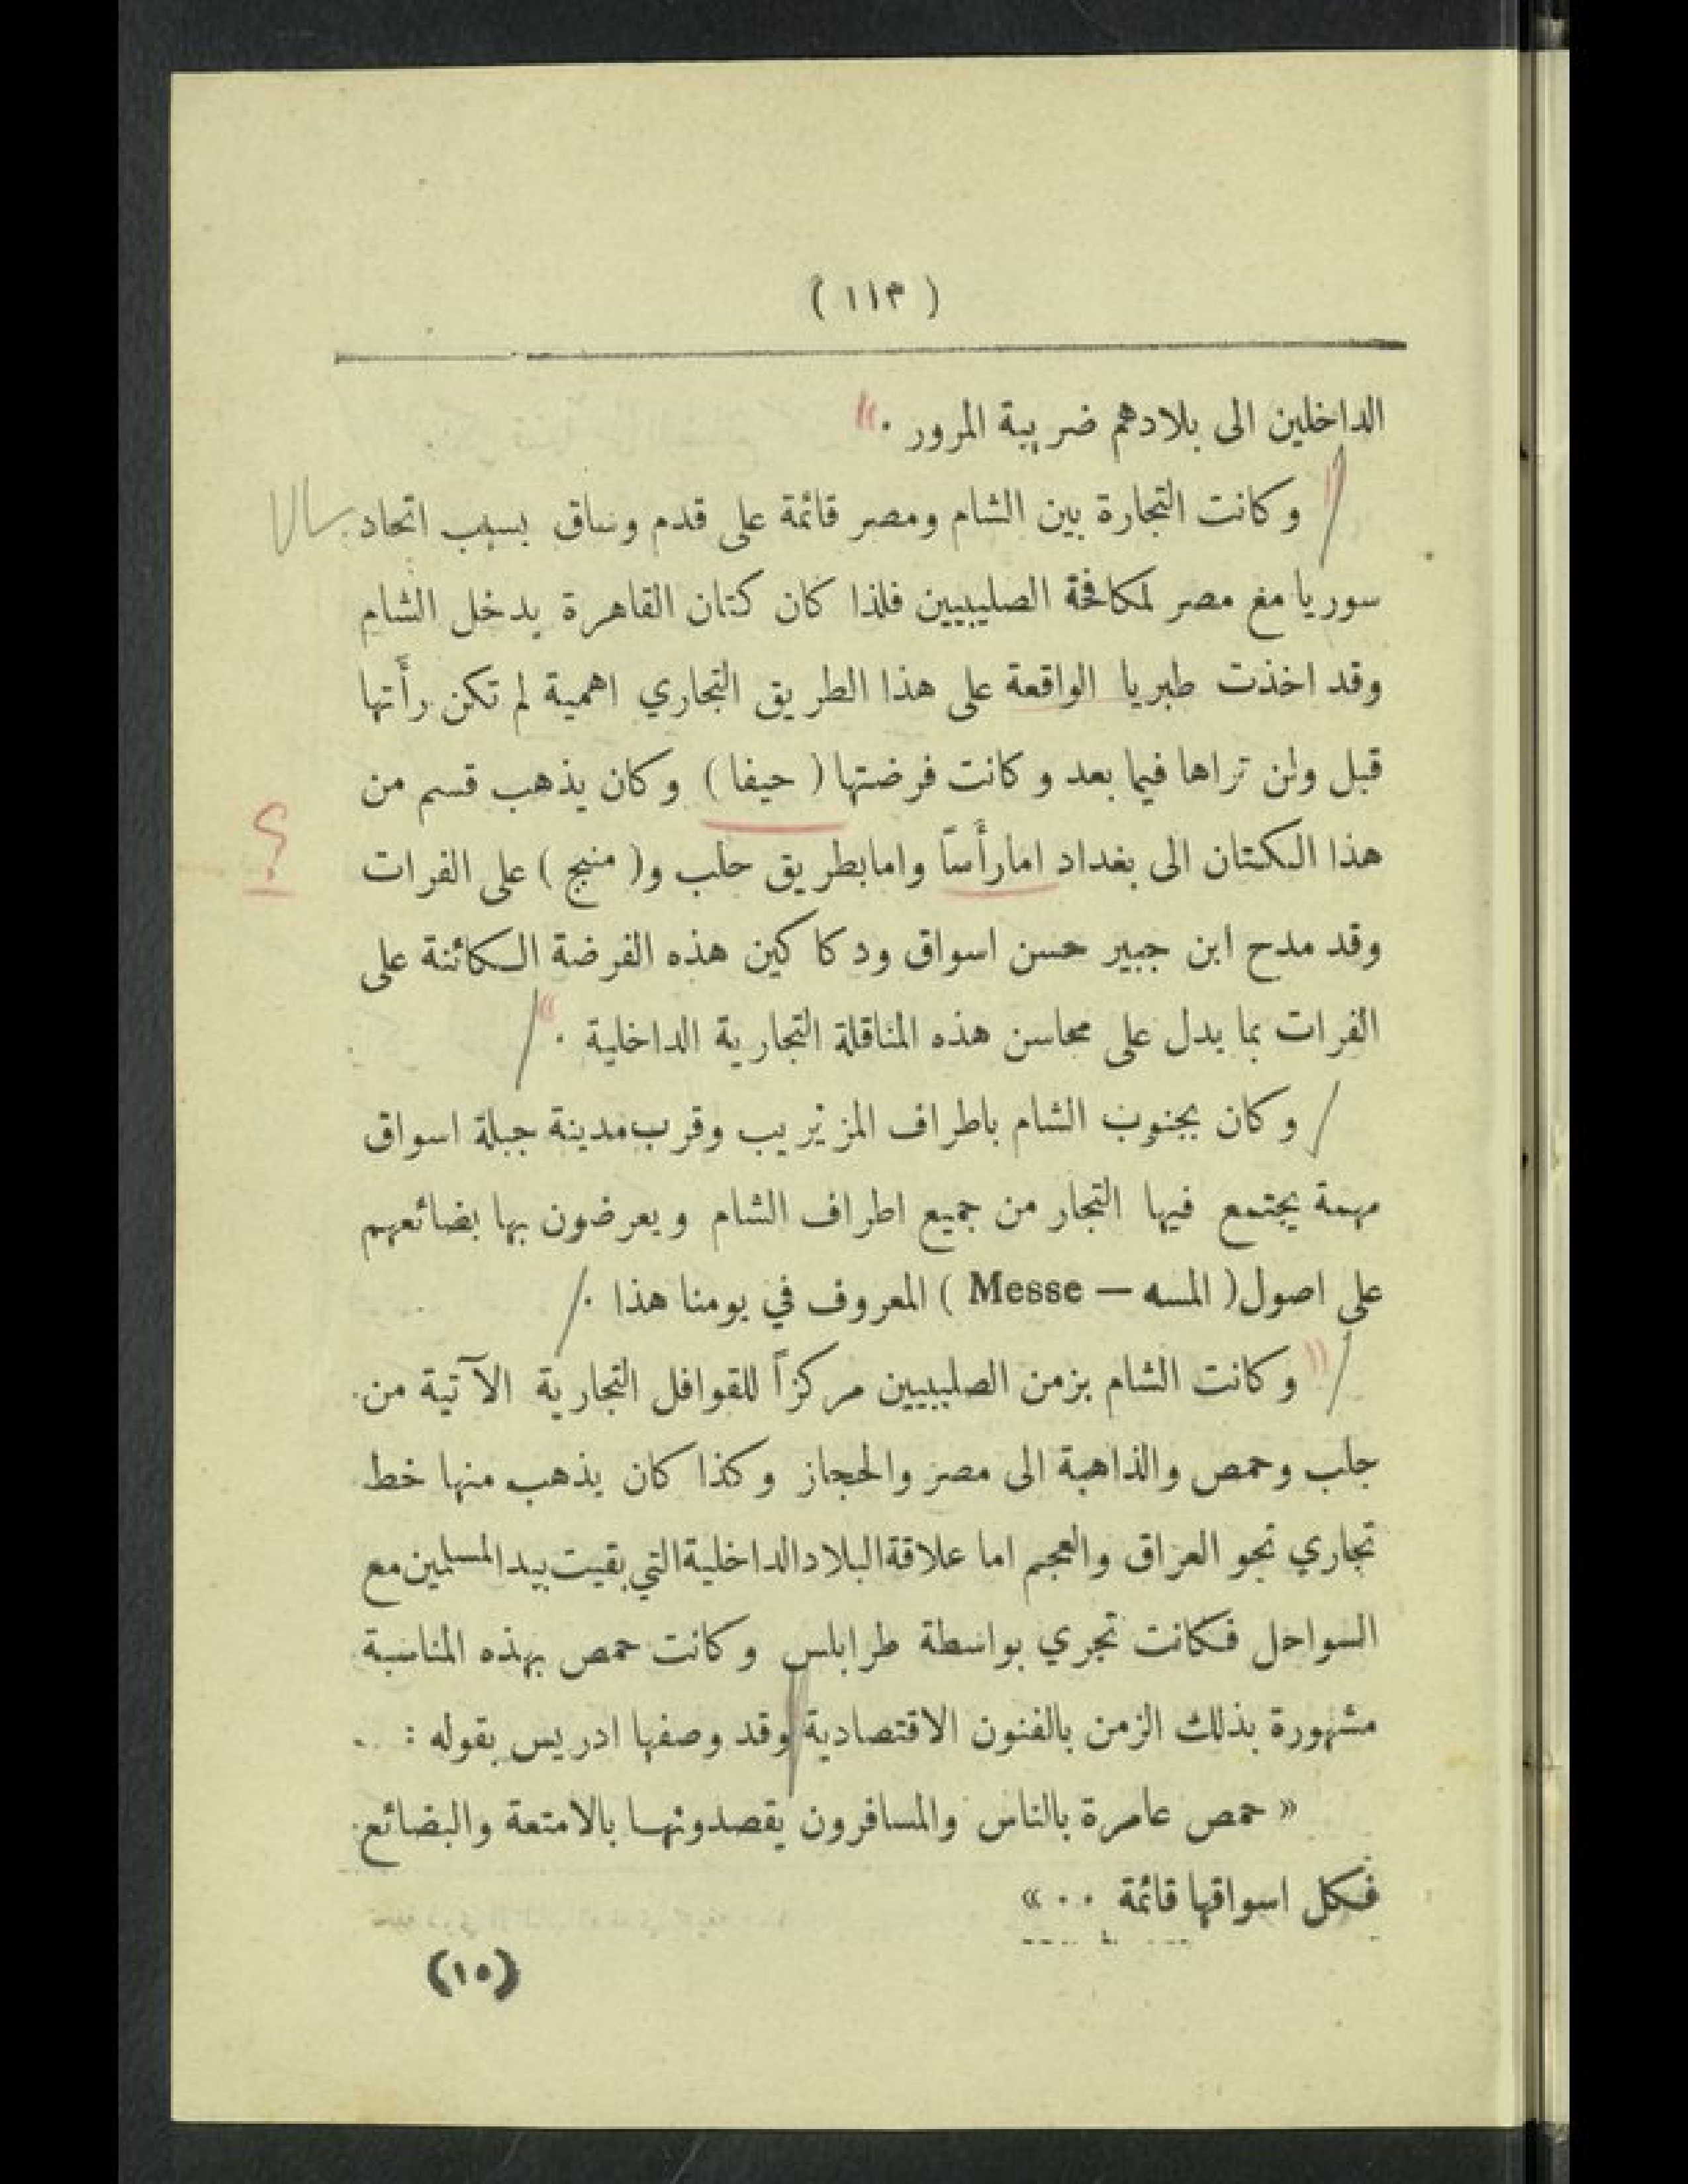 ( ١١٣ )
الداخلين الى بلادهم ضريبة المرور . »
وكانت التجارة بين الشام ومصر قائمة على قدم وساق بسبب اتحاد
سوريا مع مصر لمكافحة الصليبيين فلذا كان كتان القاهرة يدخل الشام
وقد اخذت طبريا الواقعة على هذا الطريق التجاري اهمية لم تكن رأتها
قبل ولن تراها فيما بعد وكانت فرضتها ( حيفا ) وكان يذهب قسم من
هذا الكتان الى بغداد اما رأساً واما بطريق حلب و( منبج ) على الفرات ؟
وقد مدح ابن جبير حسن اسواق ودكاكين هذه الفرضة الكائنة على
الفرات بما يدل على محاسن هذه المناقلة التجارية الداخلية . »
وكان بجنوب الشام باطراف المزيريب وقرب مدينة جبلة اسواق
مهمة يجتمع فيها التجار من جميع اطراف الشام ويعرضون بها بضائعهم
على اصول ( المسه — Messe ) المعروف في يومنا هذا .
وكانت الشام بزمن الصليبيين مركزاً للقوافل التجارية الآتية من
حلب وحمص والذاهبة الى مصر والحجاز وكذا كان يذهب منها خط
تجاري نحو العراق والعجم اما علاقة البلاد الداخلية التي بقيت بيد المسلمين مع
السواحل فكانت تجري بواسطة طرابلس وكانت حمص بهذه المناسبة
مشهورة بذلك الزمن بالفنون الاقتصادية وقد وصفها ادريس بقوله :
« حمص عامرة بالناس والمسافرون يقصدونها بالامتعة والبضائع
فكل اسواقها قائمة . . »
(١٥)